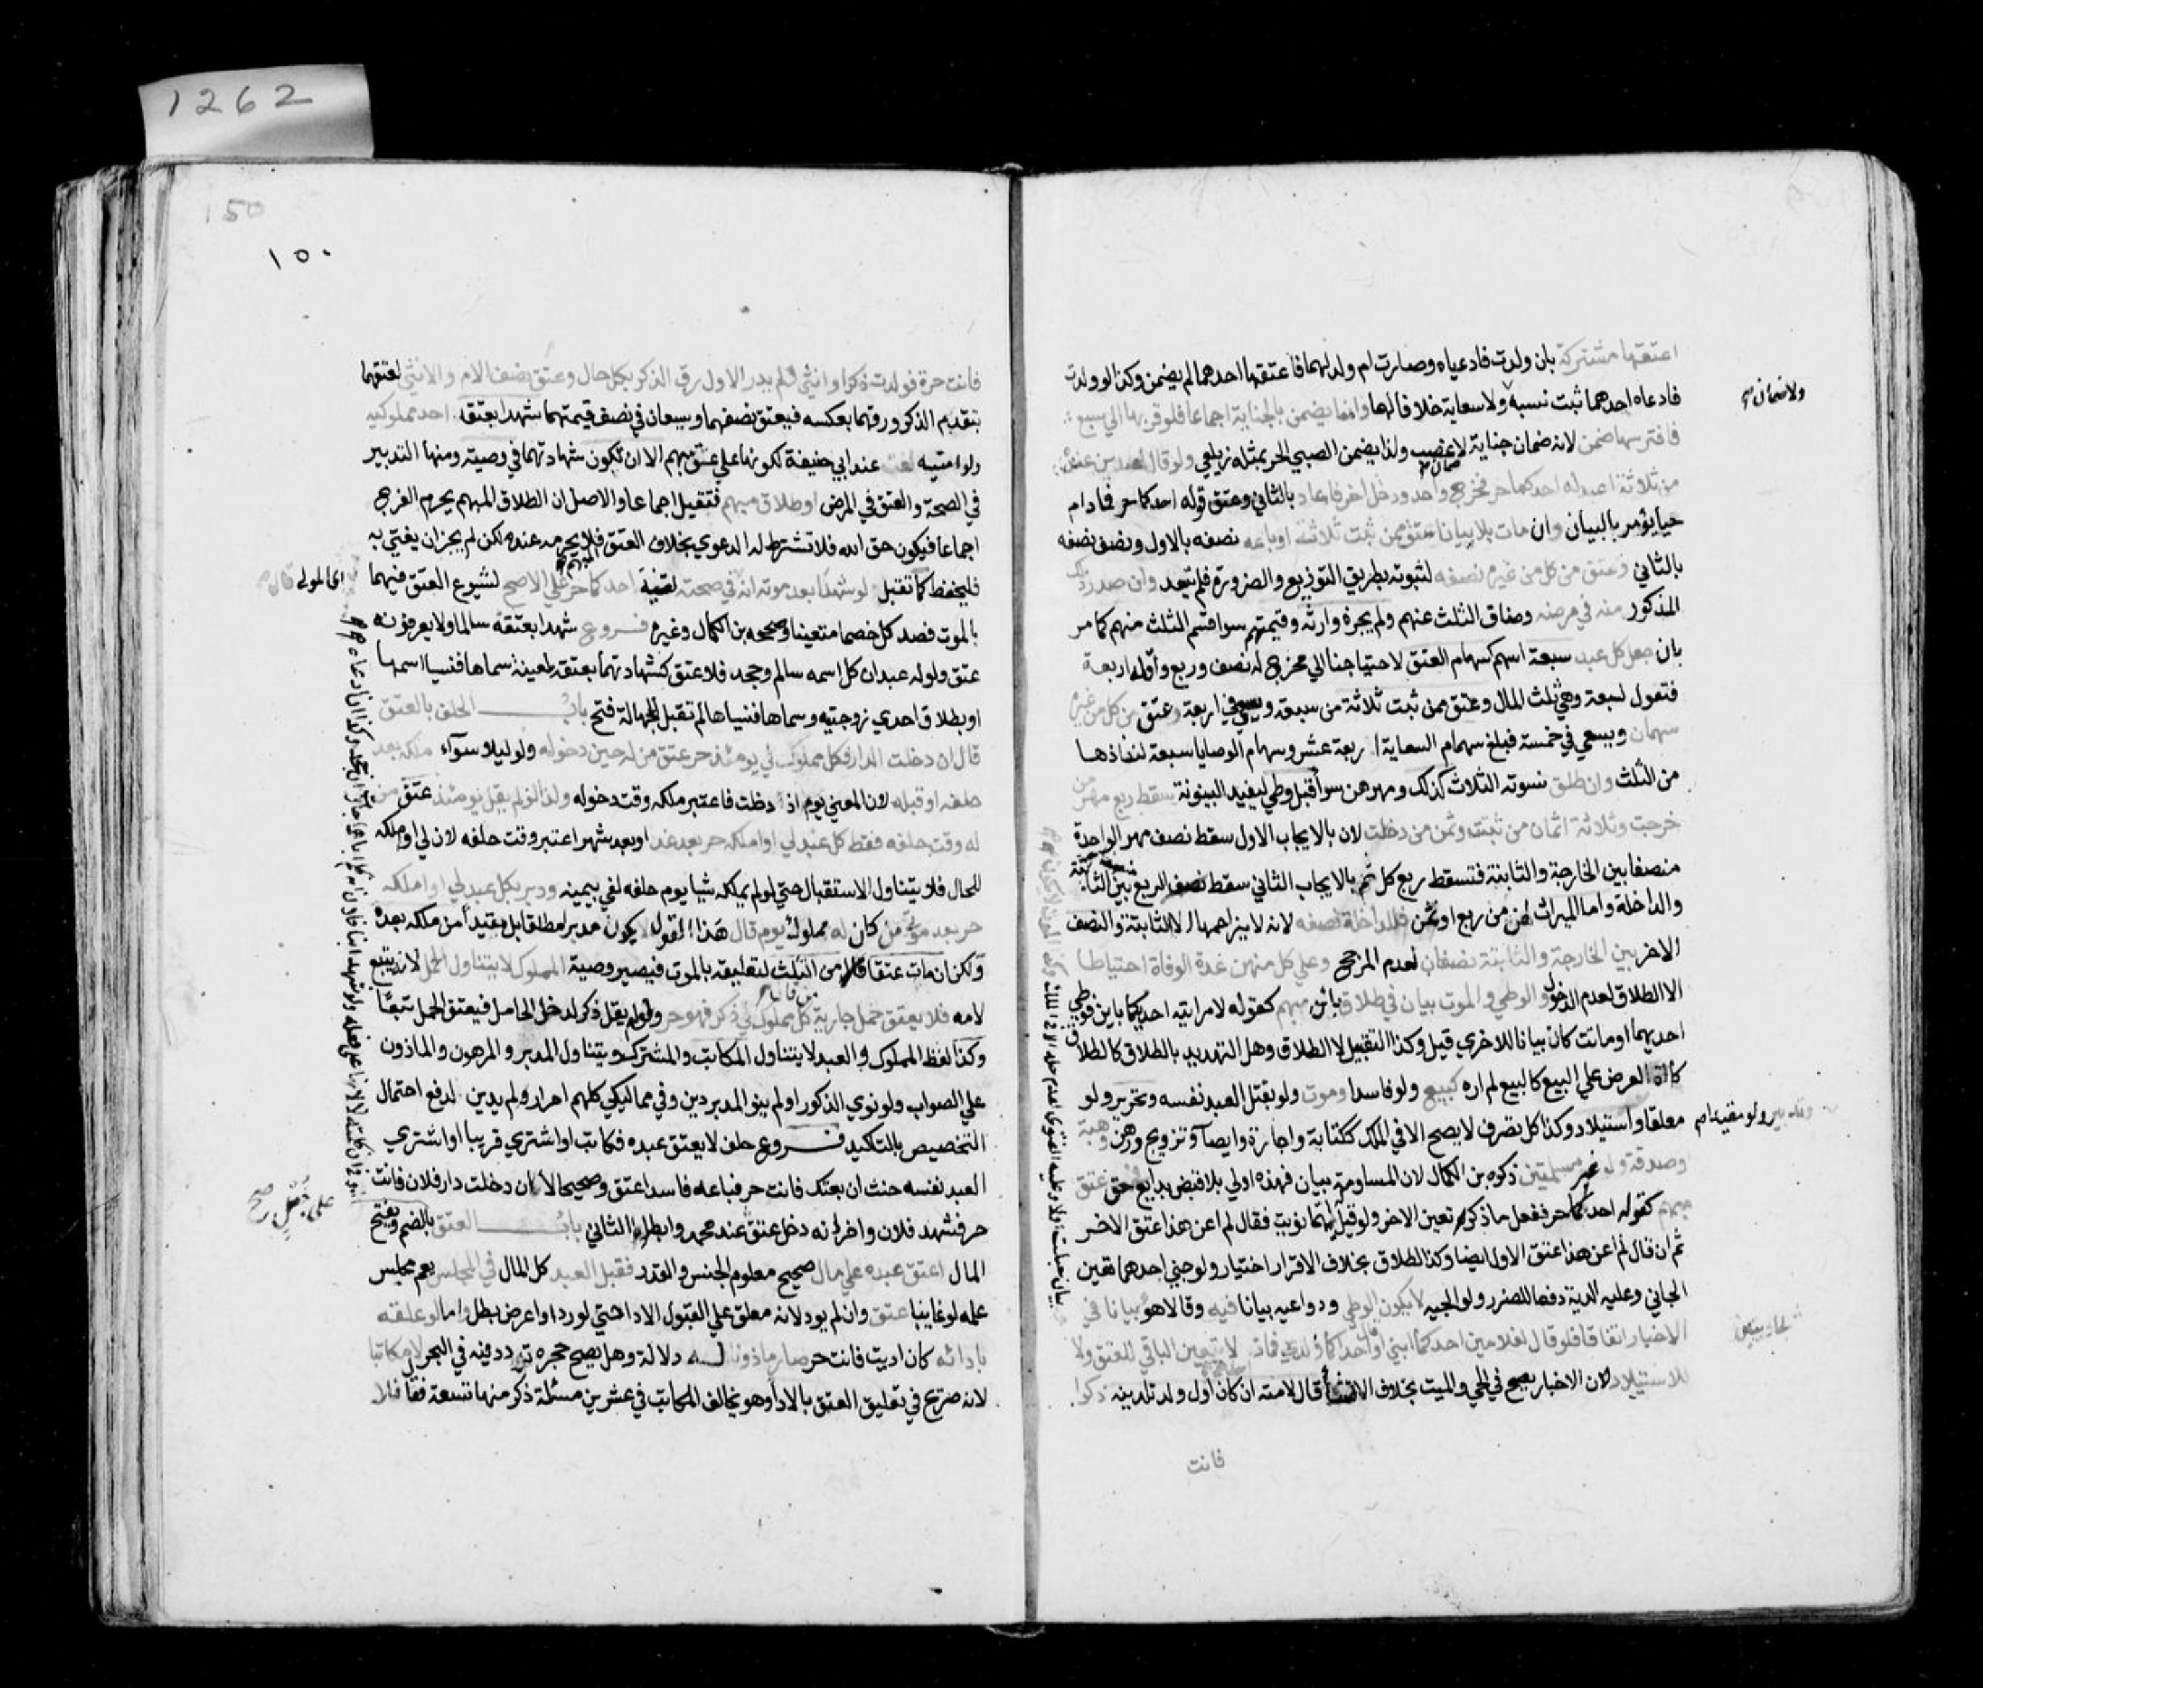 1262
150
١٥٠
اعتقها مشتركة بان ولدت فادعياه وصارت ام ولد لهما فاعتقها احدهما لم يضمن وكذا لو ولدت
فادعاه احدهما ثبت نسبه ولا سعاية خلافا لهما وانما يضمن بالجناية اجماعا فلو قربها الي سبع
فافترسها ضمن لانه ضمان جناية لا غصب ولذا يضمن الصبي الحر بمثله زيلعي ولو قال لعبدين عنده
من ثلاثة اعبد له احدكما حر فخرج واحد ودخل اخر فاعاد بالثاني وعتق قوله احدكما حر فما دام
حيا يؤمر بالبيان وان مات بلا بيان عتق ممن ثبت ثلاثة ارباعه نصفه بالاول ونصف نصفه
بالثاني وعتق من كل من غيره نصفه لثبوته بطريق التوزيع والضرورة فلم يتعد وان صدر ذلك
المذكور منه في مرضه وضاق الثلث عنهم ولم يجزه وارثه وقيمتهم سوا قسم الثلث منهم كما مر
بان جعل كل عبد سبعة اسهم كسهام العتق لاحتياجنا الي مخرج له نصف وربع واقله اربعة
فتعول لسبعة وهي ثلث المال وعتق ممن ثبت ثلاثة من سبعة ويسعي في اربعة وعتق من كل من غيره
سهمان ويسعي في خمسة فبلغ سهام السعاية اربعة عشر وسهام الوصايا سبعة لنفاذها
من الثلث وان طلق نسوته الثلاث كذلك ومهرهن سوا قبل وطي ليفيد البينونة سقط ربع مهر من
خرجت وثلاثة اثمان من ثبتت وثمن من دخلت لان بالايجاب الاول سقط نصف مهر الواحدة
منصفا بين الخارجة والثابتة فتسقط ربع كل ثم بالايجاب الثاني سقط نصف الربع بين الثابتة
والداخلة واما الميراث لهن من ربع او ثمن فللداخلة نصفه لانه لا يزاحمها الا الثابتة والنصف
الاخر بين الخارجة والثابتة نصفان لعدم المرجح وعلي كل منهن عدة الوفاة احتياطا
لا الطلاق لعدم الدخول والوطي والموت بيان في طلاق بائن مبهم كقوله لامراتيه احديكما باين فوطي
احديهما او ماتت كان بيانا للاخري قيل وكذا التقبيل لا الطلاق وهل التهديد بالطلاق كالطلاق
كالة العرض علي البيع كالبيع لم اره كبيع ولو فاسدا وموت ولو بقتل العبد نفسه وتحرير ولو
معلقا واستيلاد وكذا كل تصرف لا يصح الا في الملك ككتابة واجارة وايصا وتزويج ورهن وهبة
وصدقة ولو غير مسلمتين ذكره بن الكمال لان المساومة بيان فهذه اولي بلا قبض بدايع في حق عتق
مبهم كقوله احدكما حر ففعل ما ذكر تعين الاخر ولو قيل ايهما نويت فقال لم اعن هذا عتق الاخر
ثم ان قال لم اعن هذا عتق الاول ايضا وكذا الطلاق بخلاف الاقرار اختيار ولو جني احدهما تعين
الجاني وعليه الدية دفعا للضرر ولوالجيه لا يكون الوطي ودواعيه بيانا فيه وقالا هو بيان في
الاخبار اتفاقا فلو قال لغلامين احدكما ابني او قال احداكما ام ولدي فمات لا يتعين الباقي للعتق ولا
للاستيلاد لان الاخبار يصح في الحي والميت بخلاف الانشا قال لامته ان كان اول ولد تلدينه ذكرا
فانت
ولا ضمان صح
وتدبير ولو مقيدا صح
فانت حرة فولدت ذكرا وانثي ولم يدر الاول رق الذكر بكل حال وعتق نصف الام والانثي لعتقهما
بتقديم الذكر ورقهما بعكسه فيعتق نصفهما ويسعيان في نصف قيمتهما شهدا بعتق احد مملوكيه
ولو امتيه لغت عند ابي حنيفة لكونها علي عتق مبهم الا ان تكون شهادتهما في وصية ومنها التدبير
في الصحة والعتق في المرض او طلاق مبهم فتقبل اجماعا والاصل ان الطلاق المبهم يحرم الفرج
اجماعا فيكون حق الله فلا تشترط له الدعوي بخلاف العتق المبهم فلا يحرمه عنده لكن لم يجز ان يفتي به
فليحفظ كما تقبل لو شهدا بعد موته انه في صحته لقنيه احدكما حر علي الاصح لشيوع العتق فيهما
بالموت فصد كل خصما متعينا وصححه بن الكمال وغيره فــروع شهدا بعتقه سالما ولا يعرفونه
عتق ولو له عبدان كل اسمه سالم وجحد فلا عتق كشهادتهما بعتقه لمعينة سماها فنسيا اسمها
او بطلاق احدي زوجتيه وسماها فنسياها لم تقبل للجهالة فتح بابــــ الحلف بالعتق
قال ان دخلت الدار فكل مملوك لي يومئذ حر عتق من له حين دخوله ولو ليلا سواء ملكه بعد
حلفه او قبله لان المعني يوم اذ دخلت فاعتبر ملكه وقت دخوله ولذا لو لم يقل يومئذ عتق من
له وقت حلفه فقط كل عبد لي او املكه حر بعد غد او بعد شهر اعتبر وقت حلفه لان لي او املكه
للحال فلا يتناول الاستقبال حتي لو لم يملكه شيا يوم حلفه لغي يمينه ودبر بكل عبد لي او املكه
حر بعد موتي من كان له مملوك يوم قال هذا القول لا يكون مدبرا مطلقا بل مقيدا من ملكه بعده
ولكن ان مات عتقا من الثلث لتعليقه بالموت فيصير وصية المملوك لا يتناول الحمل لانه يتبع
لامه فلا يعتق حمل جارية من قال كل مملوك لي ذكر فهو حر ولو لم يقل ذكر لدخل الحامل فيعتق الحمل تبعا
وكذا لفظ المملوك والعبد لا يتناول المكاتب والمشترك ويتناول المدبر والمرهون والماذون
علي الصواب ولو نوي الذكور او لم ينو المدبر دين وفي مماليكي كلهم احرار لم يدين لدفع احتمال
التخصيص بالتاكيد فــروع حلف لا يعتق عبده فكاتب او اشتري قريبا او اشتري
العبد نفسه حنث ان بعتك فانت حر فباعه فاسدا عتق وصحيحا لا ان دخلت دار فلان فانت
حر فشهد فلان واخر انه دخل عتق عند محمد وابطله الثاني بابــــ العتق بالضم ويفتح
المال اعتق عبده علي مال صحيح معلوم الجنس والقدر فقبل العبد كل المال في المجلس يعم مجلس
علمه لو غايبا عتق وان لم يود لانه معلق علي القبول لا الادا حتي لو رد او اعرض بطل واما لو علقه
بادائه كان اديت فانت حر صار ماذونا له دلالة وهل يصح حجره تردد فيه في البحر لا مكاتبا
لانه صريح في تعليق العتق بالادا وهو يخالف المكاتب في عشرين مسئلة ذكر منها تسعة فقال فلا
اي المولي قال
علي جعل صح